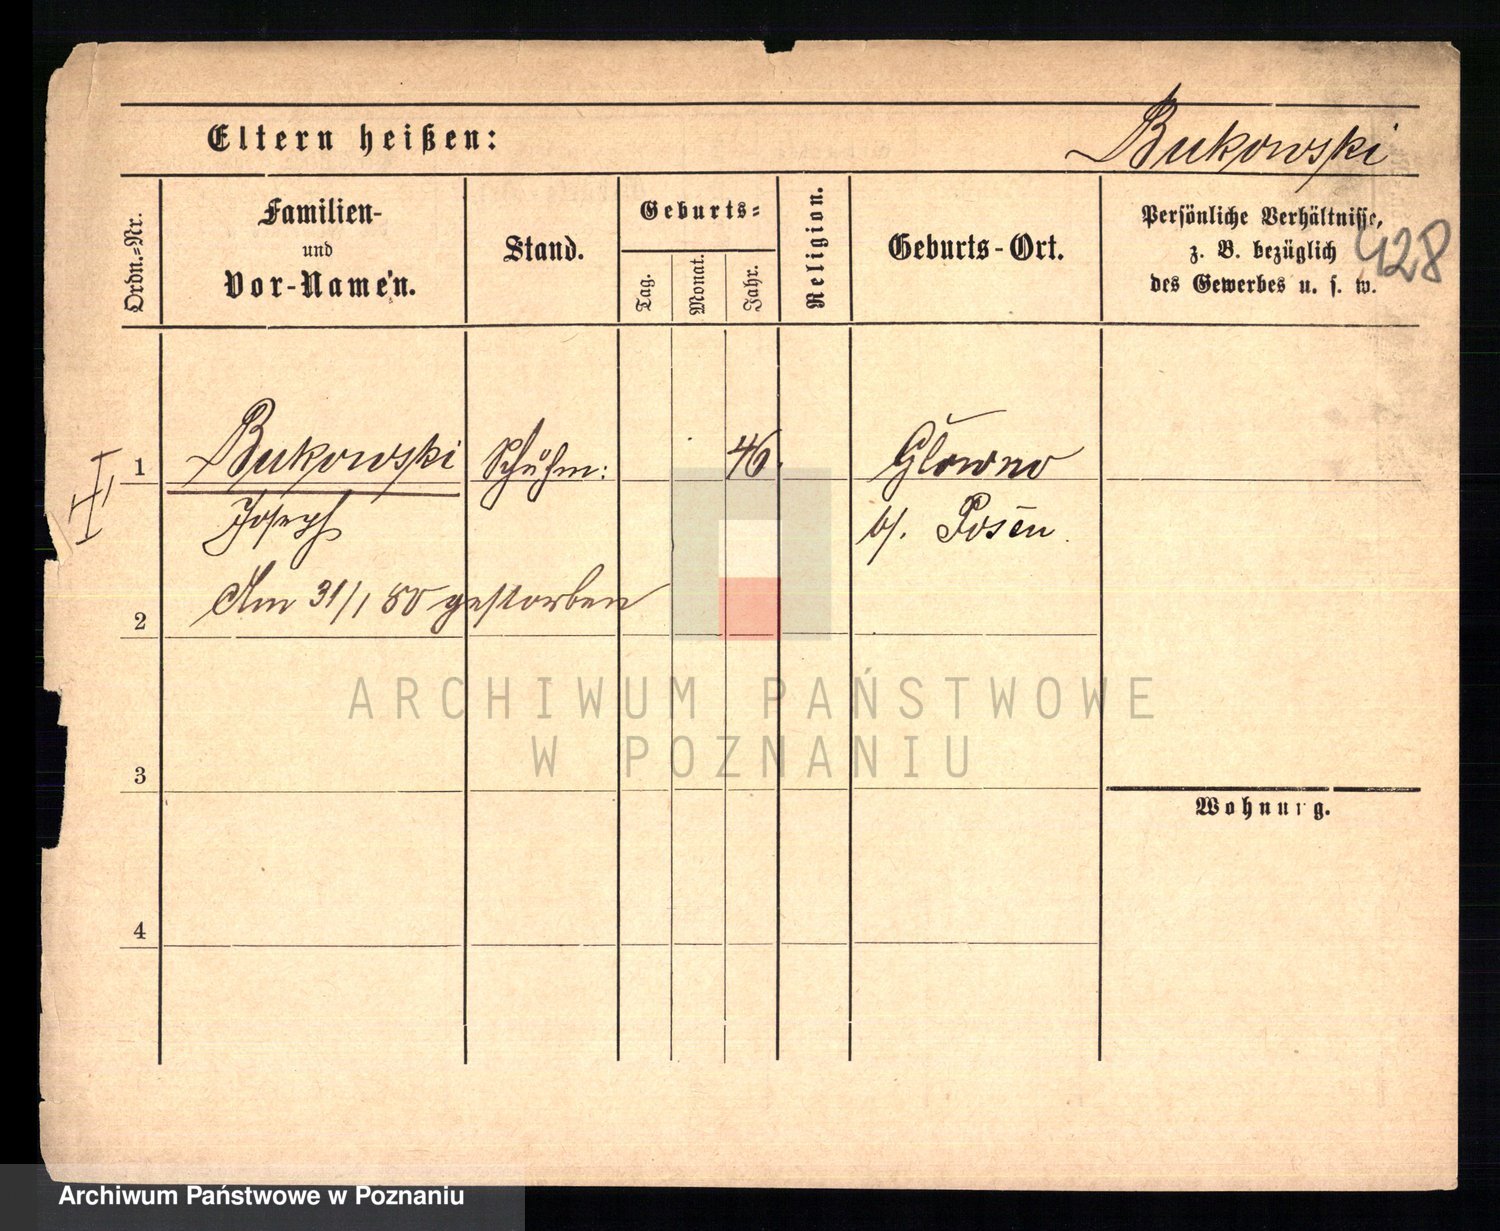 Eltern heißen:
Bukowski
Ordn.-Nr.
Familien-
und
Vor-Namen.
Stand.
Geburts-
Tag.
Monat.
Jahr.
Religion.
Geburts-Ort.
Persönliche Verhältnisse,
z. B. bezüglich
des Gewerbes u. s. w.
428
1
Bukowski
Schuhm:
46.
Glowno
Joseph
b/. Posen.
Am 31/1 80 gestorben
2
ARCHIWUM PAŃSTWOWE
W POZNANIU
3
Wohnung.
4
Archiwum Państwowe w Poznaniu